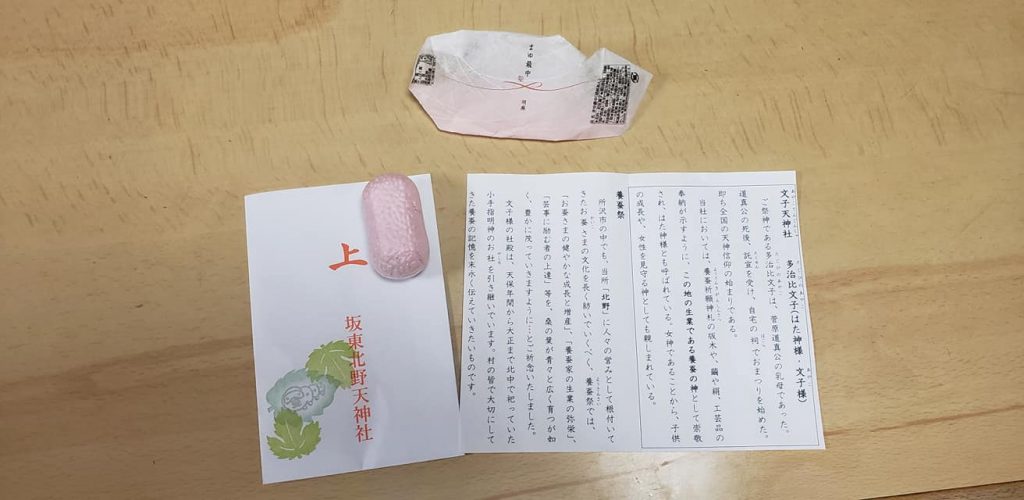 まゆ最中
上
坂東北野天神社
文子天神社　多治比文子(はた神様・文子様)
ご祭神である多治比文子は、菅原道真公の乳母であった。
道真公の死後、託宣を受け、自宅の祠でおまつりを始めた。
即ち全国の天神信仰の始まりである。
当社においては、養蚕祈願神札の版木や、繭や絹、工芸品の
奉納が示すように、この地の生業である養蚕の神として崇敬
され、はた神様とも呼ばれている。女神であることから、子供
の成長や、女性を見守る神としても親しまれている。
養蚕祭
所沢市の中でも、当所「北野」に人々の営みとして根付いて
きたお蚕さまの文化を長く紡いでいくべく、養蚕祭では、
「お蚕さまの健やかな成長と増産」、「養蚕家の生業の弥栄」、
「芸事に励む者の上達」等を、桑の葉が青々と広く育つが如
く、豊かに茂っていきますように…とご祈念いたしました。
文子様の社殿は、天保年間から大正まで北中で祀っていた
小手指明神のお社を引き継いでいます。村の皆で大切にして
きた養蚕の記憶を末永く伝えていきたいものです。